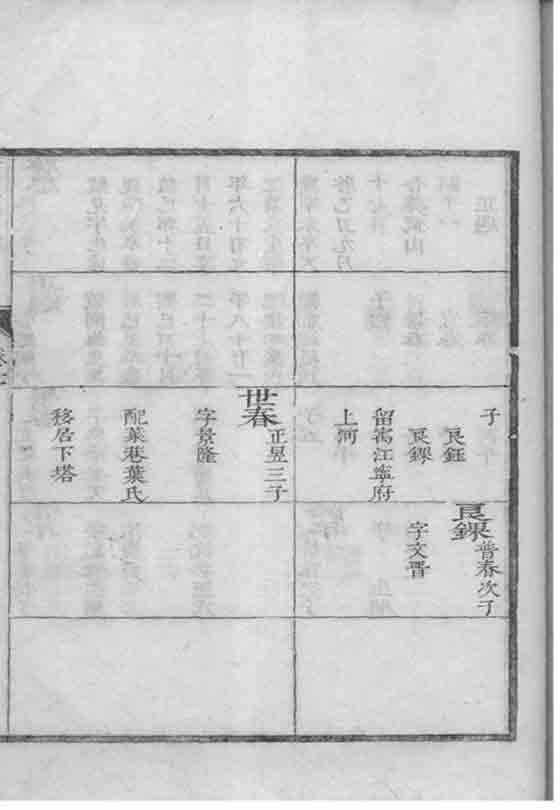 子
艮鈺
艮錁
留寓江寧府
上河
世春
正昱三子
字景隆
配葉巷葉氏
移居下塔
艮錁
普春次子
字文晋